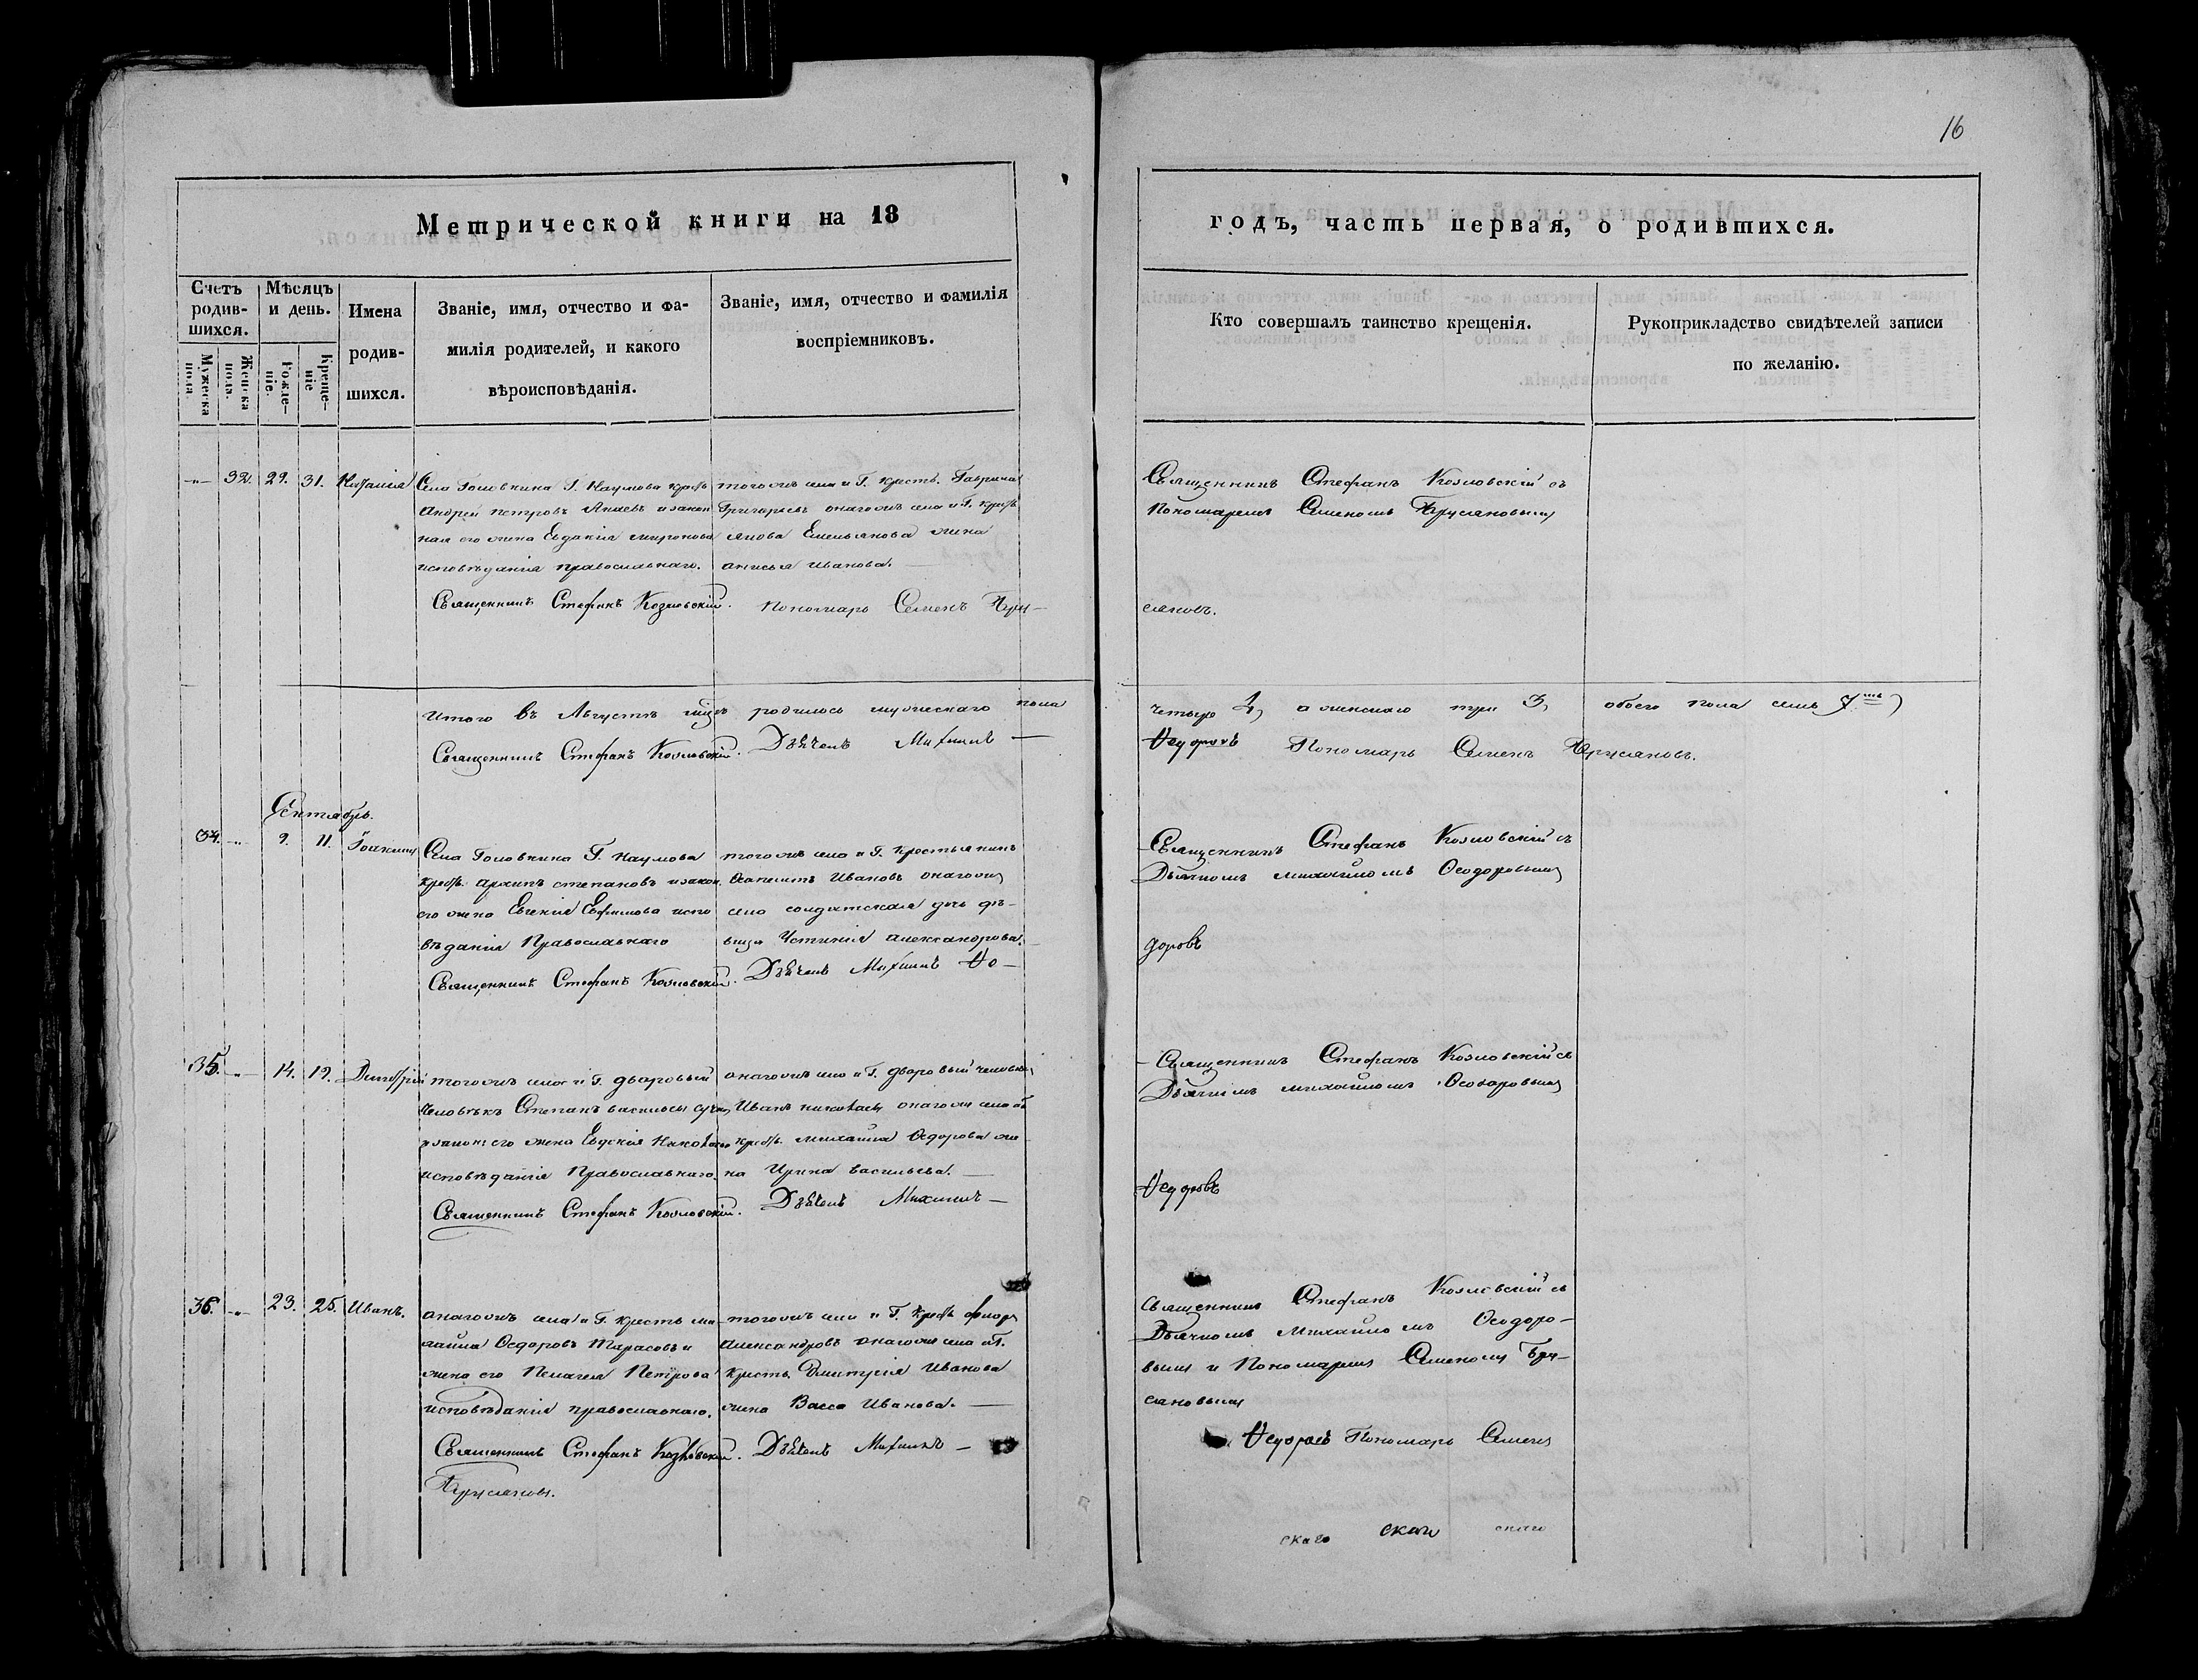 16
Метрической книги на 18
годъ, часть первая, о родившихся.
Счетъ родив-шихся.
Мужеска пола.
Женска пола.
Мѣсяцъ и день.
Рожде-ніе.
Креще-ніе
Имена родив-шихся.
Званіе, имя, отчество и фа-
милія родителей, и какого
вѣроисповѣданія.
Званіе, имя, отчество и фамилія
воспріемниковъ.
Кто совершалъ таинство крещенія.
Рукоприкладство свидѣтелей записи
по желанію.
32. 29. 31. Наталія
Села Головкина Г. Наумова крест.
Андрей Петровъ и закон
ная его жена Евдокія Миронова
исповѣданія православнаго.
тогожъ села и Г. крест. Гаврила
Григорьевъ онагожъ села и Г. крест.
Емельянова жена
Анисья Иванова.
Священникъ Стефанъ Козловскій съ
Пономаремъ Семеномъ Брусяновымъ
Священникъ Стефанъ Козловскій. Пономарь Семенъ Бру-
сяновъ.
Итого въ Августѣ мцѣ родилось мужескаго пола
четыре 4, а женскаго три 3, обоего пола семь 7
Священникъ Стефанъ Козловскій. Дьячекъ Михаилъ
Ѳедоровъ Пономарь Семенъ Брусяновъ.
Сентябрь.
34. 9. 11. Іоакимъ
Села Головкина Г. Наумова
крест. Архипъ Степановъ и закон.
его жена Евгенія Ефимова испо
вѣданія Православнаго
тогожъ села и Г. крестьянинъ
Ивановъ онагожъ
села солдатская дочь дѣ-
вица Устинія Александрова.
Священникъ Стефанъ Козловскій съ
Дьячкомъ Михаиломъ Ѳеодоровымъ
Священникъ Стефанъ Козловскій. Дьячекъ Михаилъ Ѳе-
доровъ
35. 14. 19. Димитрій
тогожъ села и Г. дворовый
человѣкъ Степанъ Васильевъ
и закон: его жена Евдокія
исповѣданія Православнаго.
онагожъ села и Г. дворовый человѣкъ
Иванъ Николаевъ онагожъ села
крест. Михаила Ѳедорова же
на Ирина Васильева.
Священникъ Стефанъ Козловскій съ
Дьячкомъ Михаиломъ Ѳеодоровымъ
Священникъ Стефанъ Козловскій. Дьячекъ Михаилъ
Ѳедоровъ
36. 23. 25. Иванъ.
онагожъ села и Г. крест. Ми
хайла Ѳедоровъ Тарасовъ и
жена его Пелагея Петрова
исповѣданія православнаго.
тогожъ села и Г. крест. Флоръ
Александровъ онагожъ села и Г.
крест. Димитрія Иванова
жена Васса Иванова.
Священникъ Стефанъ Козловскій съ
Дьячкомъ Михаиломъ Ѳеодоро-
вымъ и Пономаремъ Семеномъ Бру-
сяновымъ
Священникъ Стефанъ Козловскій. Дьячекъ Михаилъ
Ѳедоровъ Пономарь Семенъ
Брусяновъ.
скаго скаго скаго